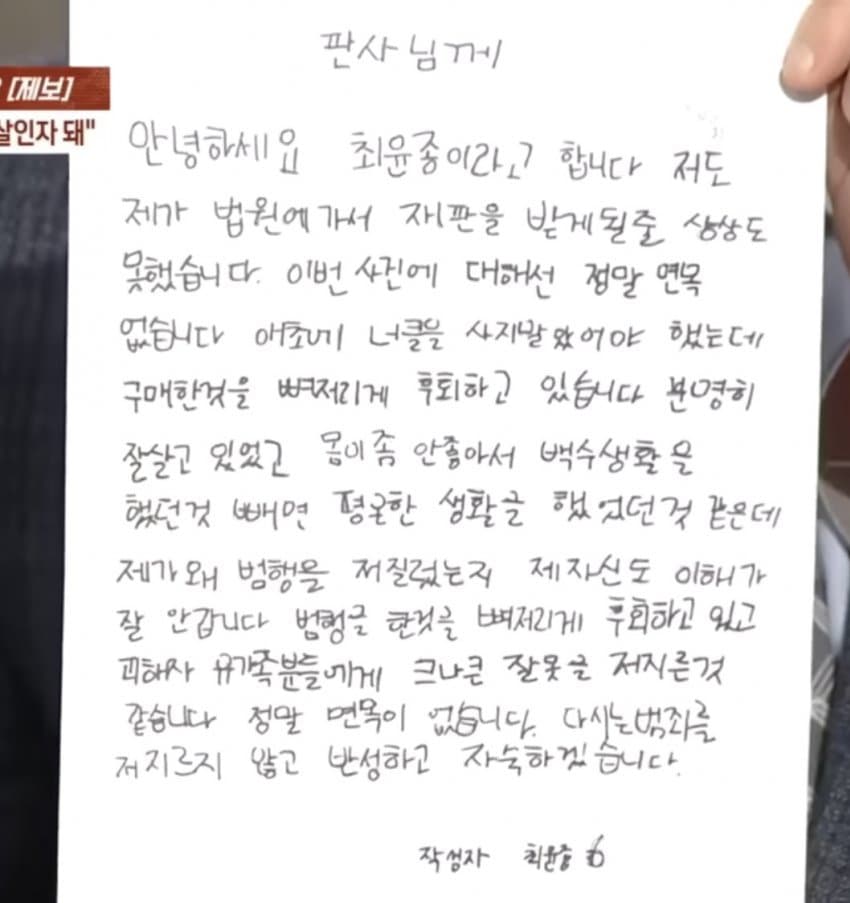 판사님께
[제보]
살인자 돼"
안녕하세요 최윤종이라고 합니다 저도
제가 법원에가서 재판을 받게될줄 상상도
못했습니다. 이번 사건에 대해선 정말 면목
없습니다 애초에 너클을 사지말았어야 했는데
구매한것을 뼈저리게 후회하고 있습니다 분명히
잘살고 있었고 몸이좀 안좋아서 백수생활을
했던것 빼면 평온한 생활을 했었던것 같은데
제가왜 범행을 저질렀는지 제자신도 이해가
잘 안갑니다 범행을 한것을 뼈저리게 후회하고 있고
피해자 유가족분들에게 크나큰 잘못을 저지른것
같습니다 정말 면목이 없습니다. 다시는범죄를
저지르지 않고 반성하고 자숙하겠습니다.
작성자 최윤종